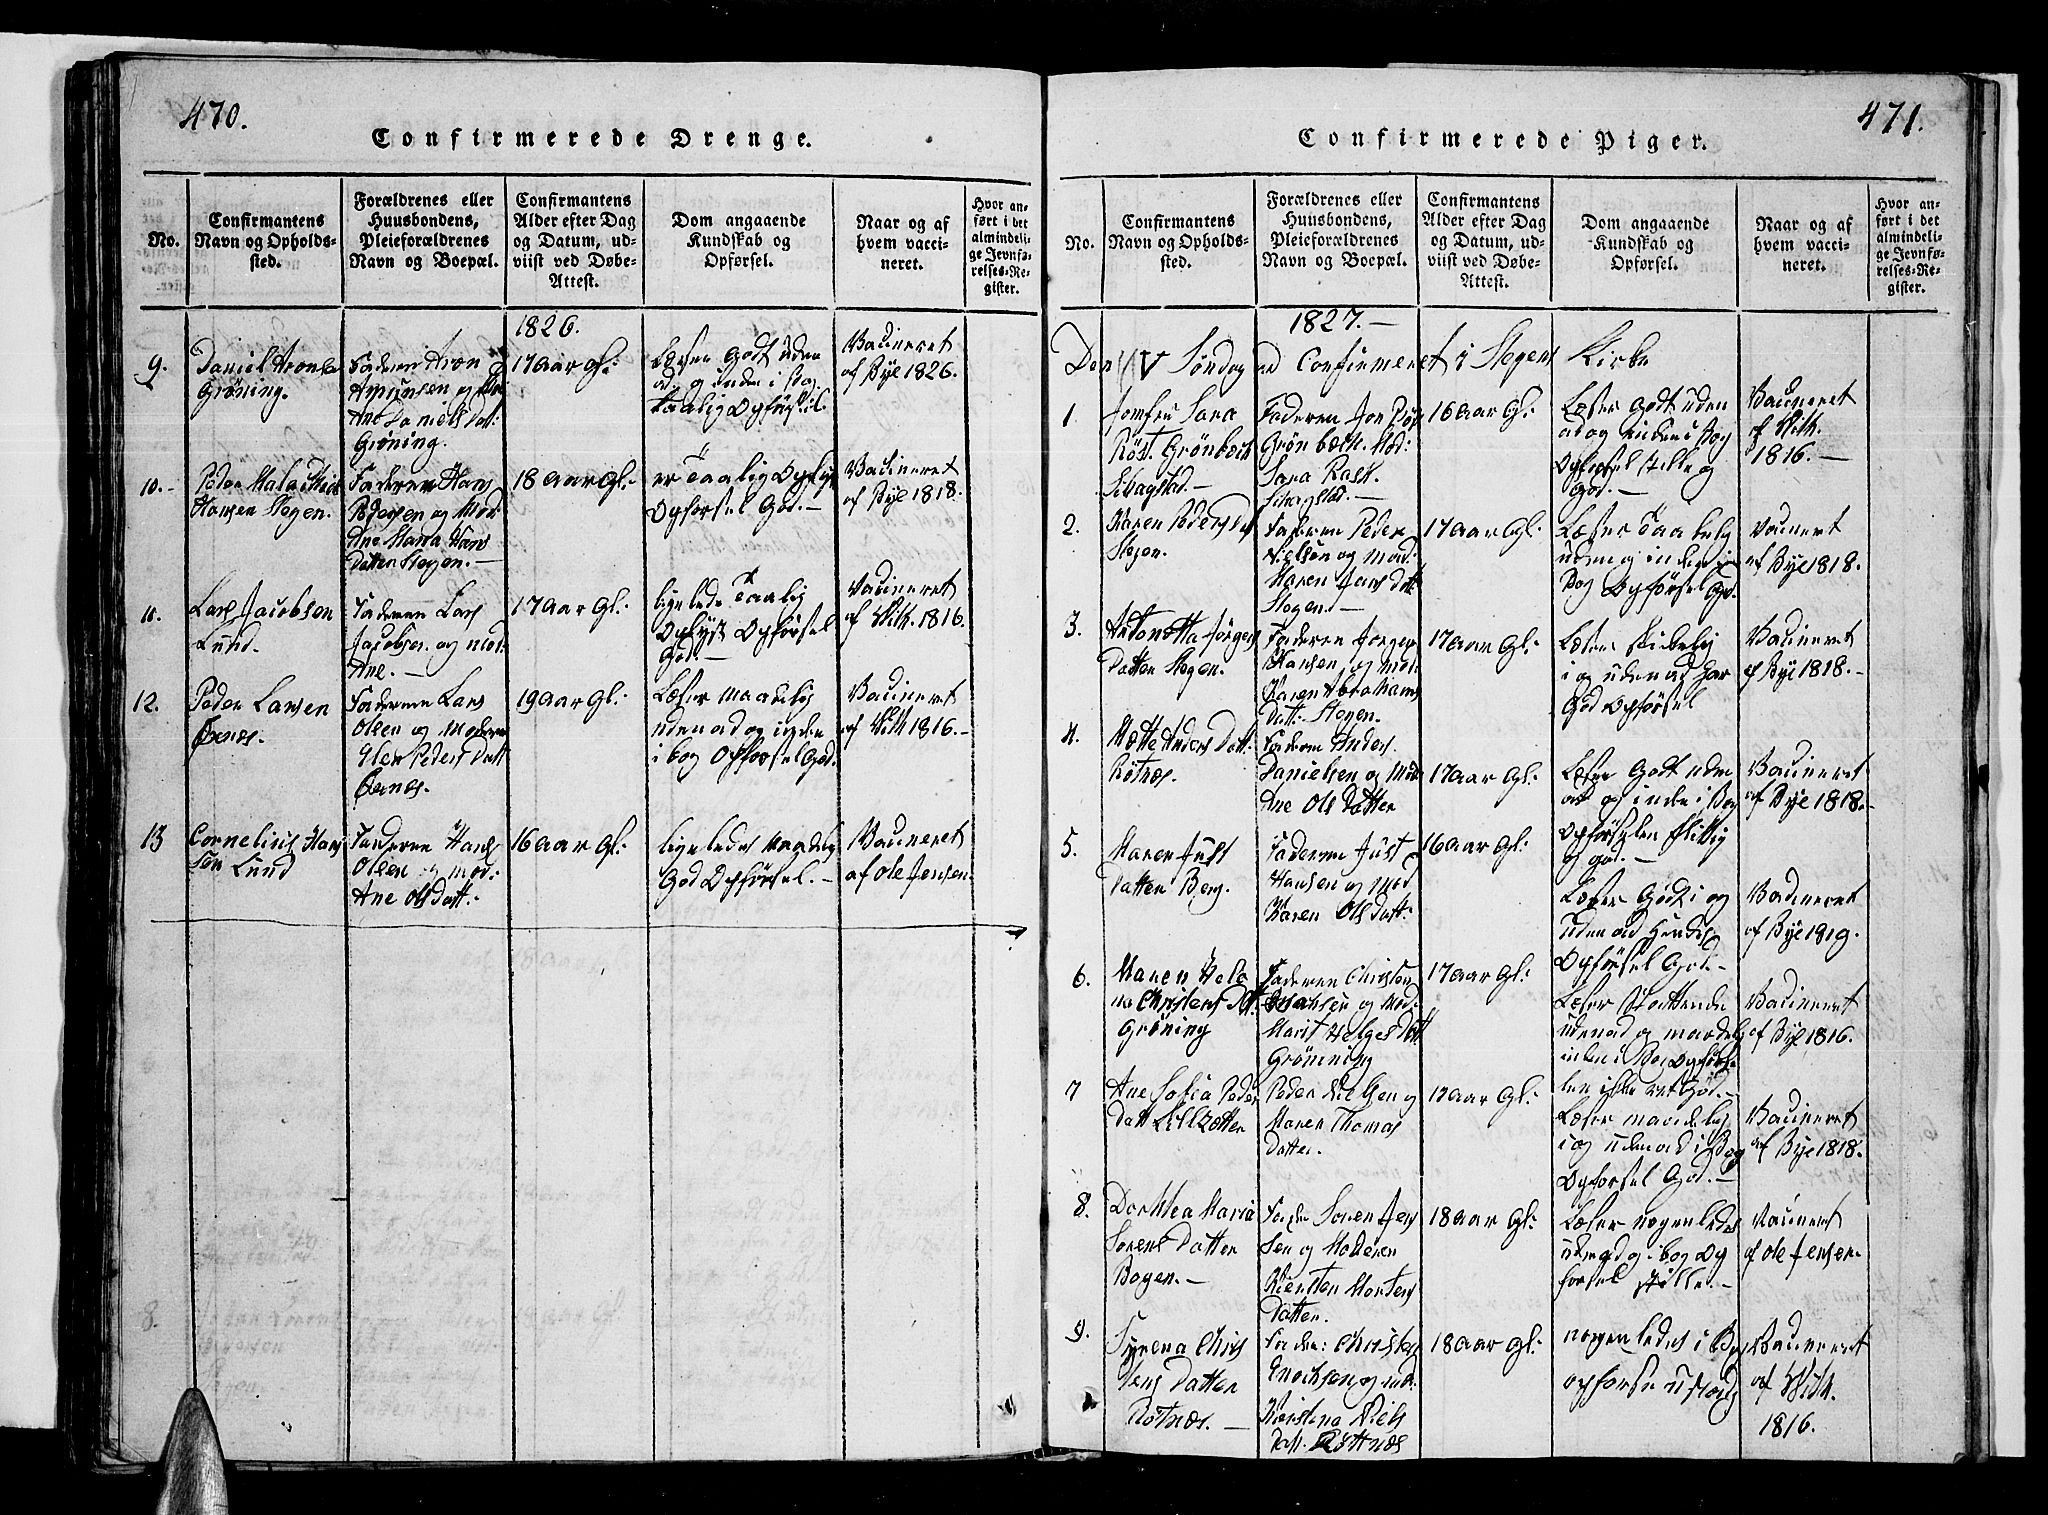 470.
Confirmerede Drenge.
No.
Confirmantens
Navn og Opholds-
sted.
Forældrenes eller
Huusbondens,
Pleieforældrenes
Navn og Boepæl.
Confirmantens
Alder efter Dag
og Datum, ud-
viist ved Døbe-
Attest.
Dom angaaende
Kundskab og
Opførsel.
Naar og af
hvem vacci-
neret.
Hvor an-
ført i det
almindeli-
ge Jevnfø-
relses-Re-
gister.
1826.
9.
Daniel Aronsen
Grøning.
Faderen Aron
og
Ane Daniels Dat:
Grøning.
17 Aar gl:
Læser Godt uden
ad og inde i Bog
taalig Opførsel.
Vacineret
af Bye 1826.
10.-
Peder
Hansen Stegen.
Faderen Hans
Pedersen og Mod
Ane Maria Hans
Datter Stegen.-
18 Aar Gl:
er Taalig Oplyst
Opførsel God.-
Vacineret
af Bye 1818.
11.
Lars Jacobsen
Lund.
Faderen Lars
Jacobsen og mod:
Ane.-
17 Aar Gl:
ligeledes Taalig
Oplyst Opførsel
God.-
Vacineret
af Vik. 1816.
12.
Peder Larsen
Øenes.
Faderen Lars
Olsen og Moderen
Elen Peders Datt
Øenes.
19 Aar Gl:
Læser Maadelig
udenad og inden
i bog Opførsel God.
Vacineret
af Vik 1816.-
13
Cornelius Han
sen Lund
Faderen Hans
Olsen og mod:
Ane Ols Datt:
16 Aar Gl:
ligeledes Maadelig
God Opførsel.-
Vacineret
af Ole Jensen
471.
Confirmerede Piger.
No.
Confirmantens
Navn og Opholds-
sted.
Forældrenes eller
Huusbondens,
Pleieforældrenes
Navn og Boepæl.
Confirmantens
Alder efter Dag
og Datum, ud-
viist ved Døbe-
Attest.
Dom angaaende
Kundskab og
Opførsel.
Naar og af
hvem vacci-
neret.
Hvor an-
ført i det
almindeli-
ge Jevnfø-
relses-Re-
gister.
1827.-
Den Søndag Confirmeret i Stegens Kirke
1.
Jomfru Sara
Röst Grönbech
Skagstad.-
Faderen Jon
Grønbech. Mod:
Sara Rask.
Skagstad.-
16 Aar Gl:
Læser Godt uden
ad og inden i Bog
Opførsel stille og
God.-
Vacineret
af Vik.
1816.-
2.
Karen Peders Dat
Stegen.
Faderen Peder
Nielsen og Mod:
Maren Jans Datt
Stegen.-
17 Aar Gl:
Læser Taalelig
uden og inden i
Bog Opførsel God.
Vacineret
af Bye 1818.
3.
Antonetta Jörgens
Datter Stegen.
Faderen Jørgen
Hansen og Mod
Karen Abrahams
Datt: Stegen.
17 Aar Gl:
Læser Skikkelig
i og udenad har
God Opførsel
Vacineret
af Bye 1818.-
4.
Mette Anders Datt:
Røtnæs.
Faderen Anders
Danielsen og Mod
Ane Ols Datter
17 Aar Gl:
Læser Godt uden
ad og inde i Bog
Opførselen flittig
og god.-
Vacineret
af Bye 1818.-
5.
Maren Just
Datter Berg.
Faderen Just
Hansen og Mod
Karen Ols Datt:
16 Aar Gl:
Læser Godt i og
uden ad Hendes
Opførsel God.-
Vacineret
af Bye 1819.
6.
Maren Hele
na Christens Dt.
Grøning
Faderen Christen
og Mod:
Marit Helges Datt
Grönning
17 Aar Gl:
Læser Stottende
udenad og maadelig
inden i Bog Opførse
len ikke ret God.-
Vacineret
af Bye 1816.
7
Ane Sofia Peder
Datt Lillzætter
Peder Nielsen og
Maren Thomas
Datter.
17 Aar Gl:
Læser maadelig
i og udenad i Bog
Opførsel God.-
Vacineret
af Bye 1818.
8.
Dorthea Maria
Sørens Datter
Bogen.-
Fader Søren Jen
sen og Moderen
Kiersten Mortens
Datter.
18 Aar Gl:
Læser nogenledes
udenad og i bog Op
førsel stille.-
Vacineret
af Ole Jensen
9.
Syrena Chris
tens Datter
Røtnæs.-
Fader: Christen
Enochsen og mod:
Kirstina Niels
Datt. Röttnæs
18 Aar gl:
nogenledes i Bog
opførsel ustadig
Vacineret
af Vik.
1816.